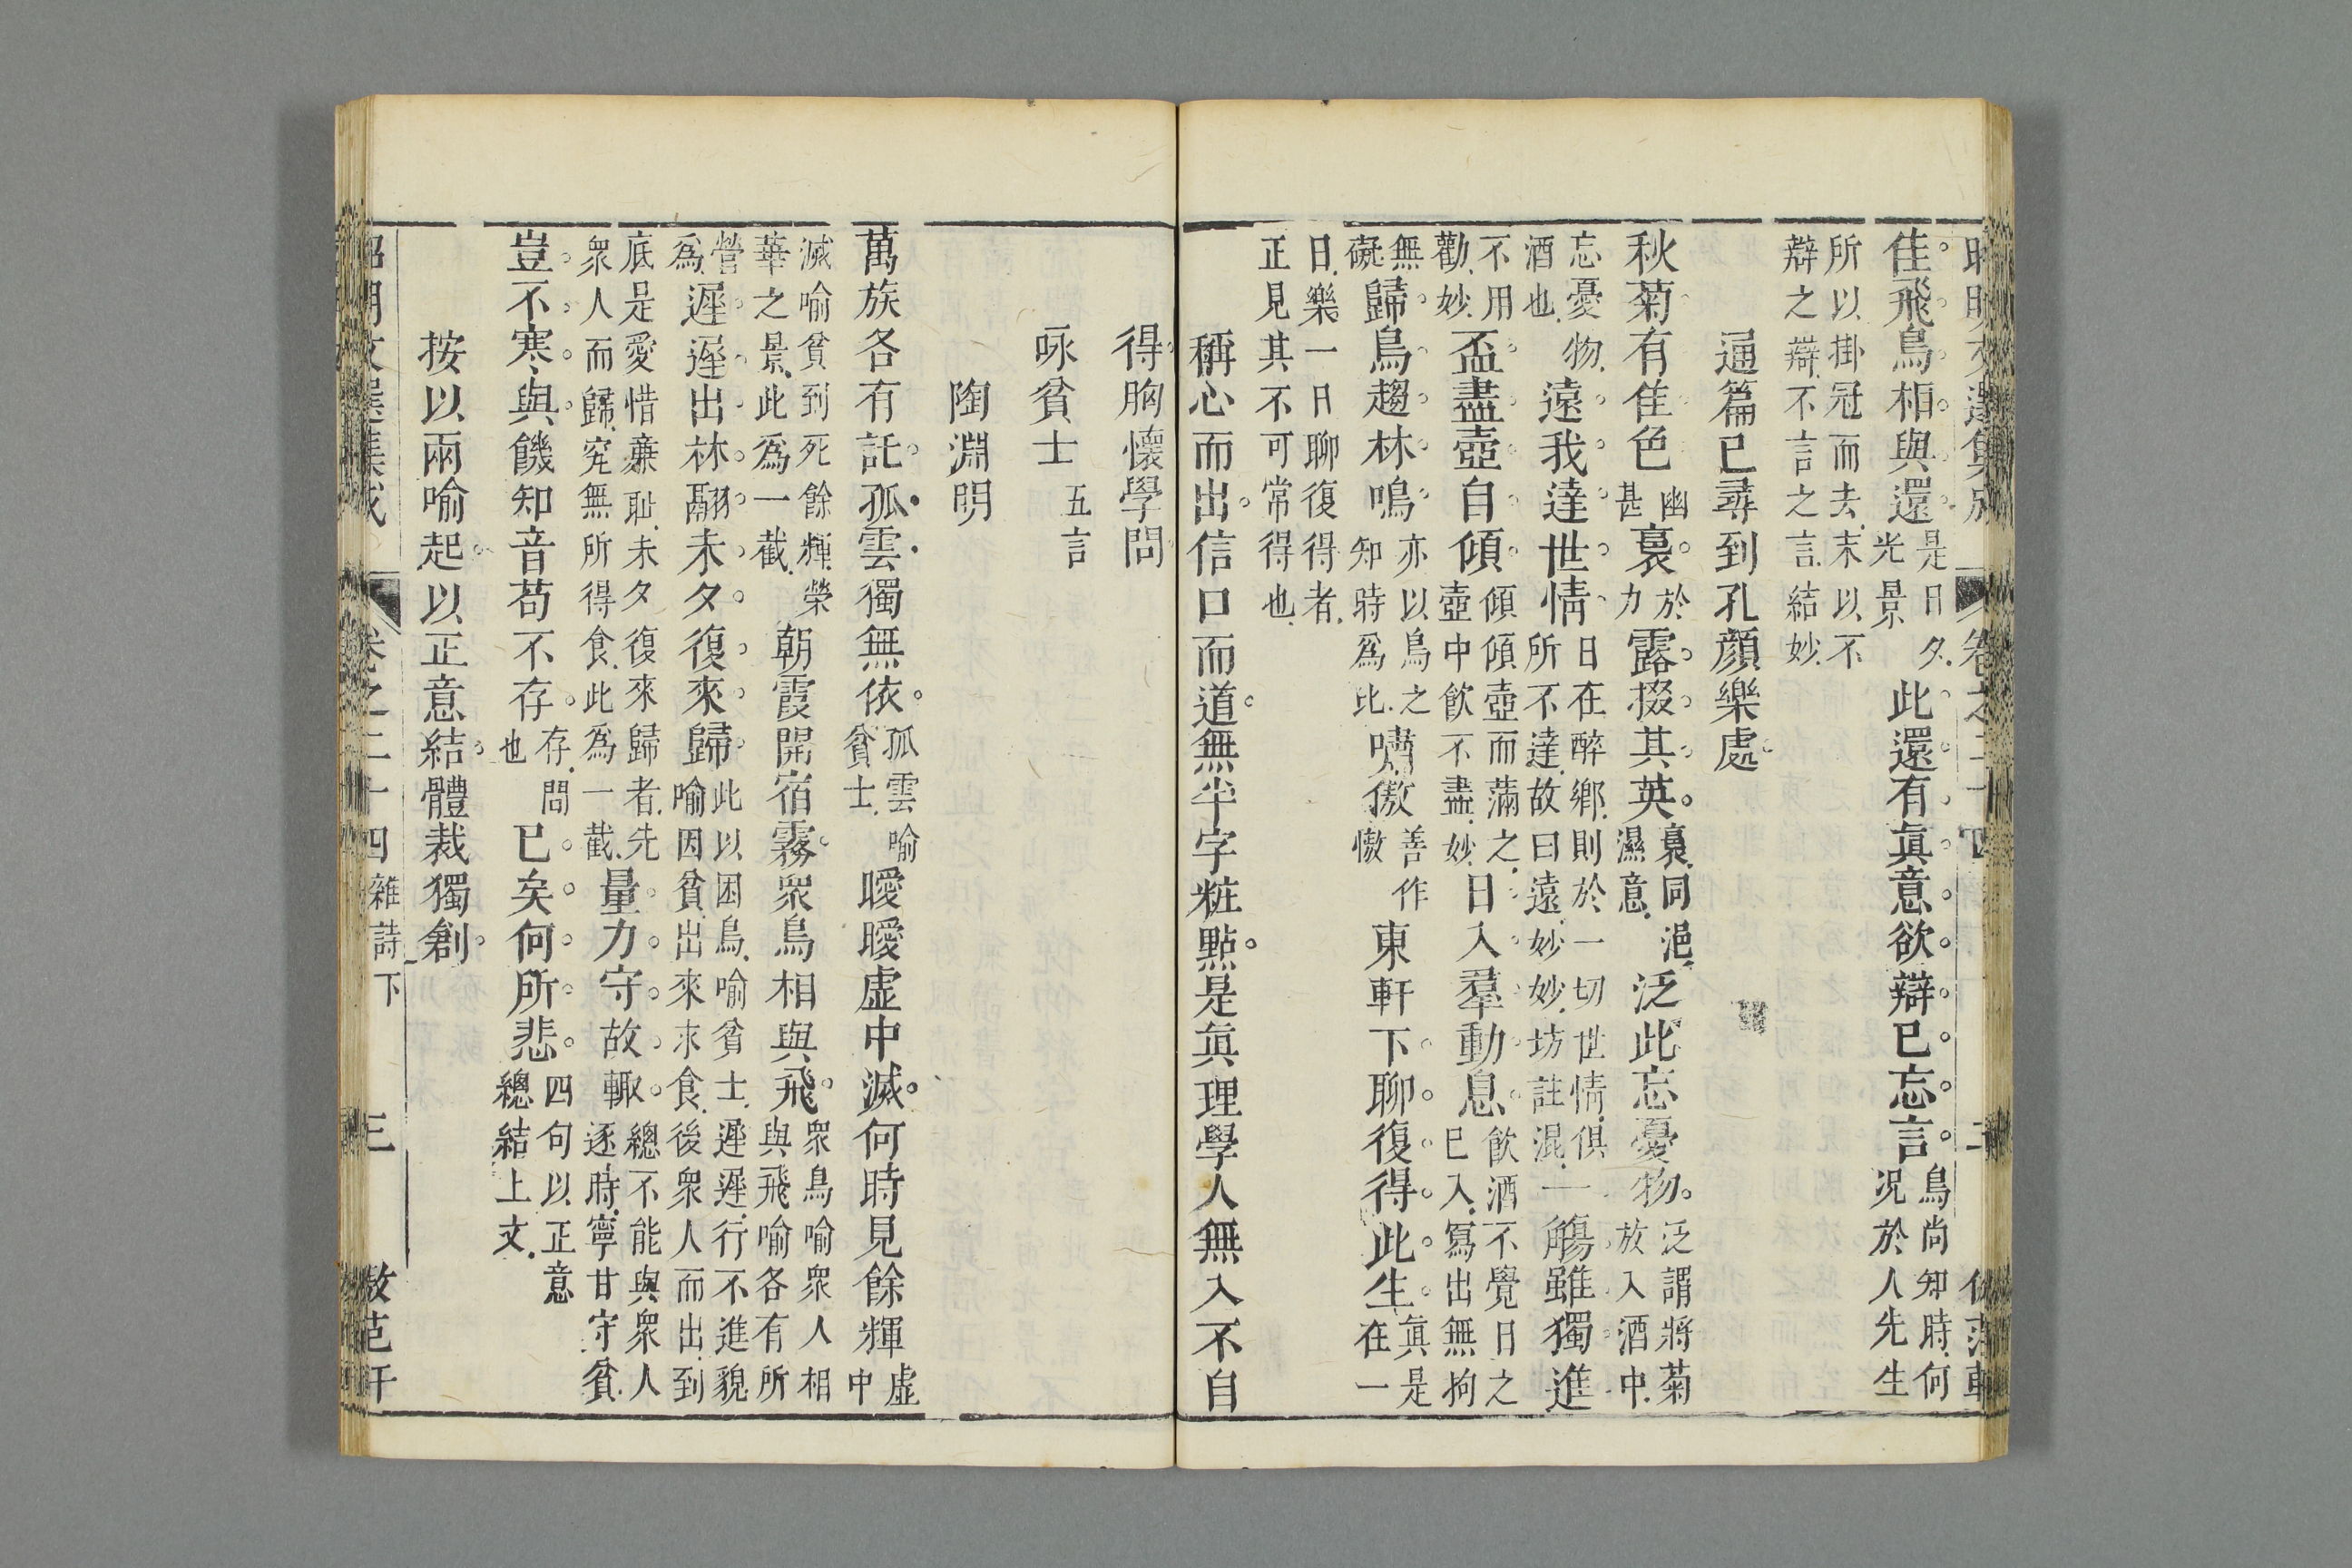 佳飛鳥相與還是日夕光景此還有眞意欲辯已忘言鳥尚知時何况於人先生
所以掛冠而去末以不辯之辯不言之言結妙
通篇已尋到孔顏樂處
秋菊有佳色幽甚裛於力露掇其英裛同浥濕意泛此忘憂物泛謂將菊放入酒中
忘憂物酒也遠我達世情日在醉鄉則於一切世情俱所不達故曰遠妙妙妙坊註混一觴雖獨進
不用勸妙盃盡壺自傾傾傾壺而滿之壺中飲不盡妙日入羣動息飲酒不覺日之已入寫出無拘
無礙歸鳥趨林鳴亦以鳥之知時爲比嘯傲善作慠東軒下聊復得此生眞是在一
日樂一日聊復得者正見其不可常得也
稱心而出信口而道無半字粧點是眞理學人無入不自
得胸懷學問
咏貧士五言
陶淵明
萬族各有託孤雲獨無依孤雲喻貧士曖曖虛中滅何時見餘輝虛中
滅喻貧到死餘輝榮華之景此爲一截朝霞開宿霧衆鳥相與飛衆鳥喻衆人相與飛喻各有所
營爲遲遲出林翮未夕復來歸此以困鳥喻貧士遲遲行不進貌喻因貧出來求食後衆人而出到
底是愛惜亷耻未夕復來歸者先衆人而歸究無所得食此爲一截量力守故轍總不能與衆人逐時寧甘守貧
豈不寒與饑知音苟不存存問也已矣何所悲四句以正意總結上文
按以兩喻起以正意結體裁獨創
昭明文選集成 卷之二十四 雜詩下 三